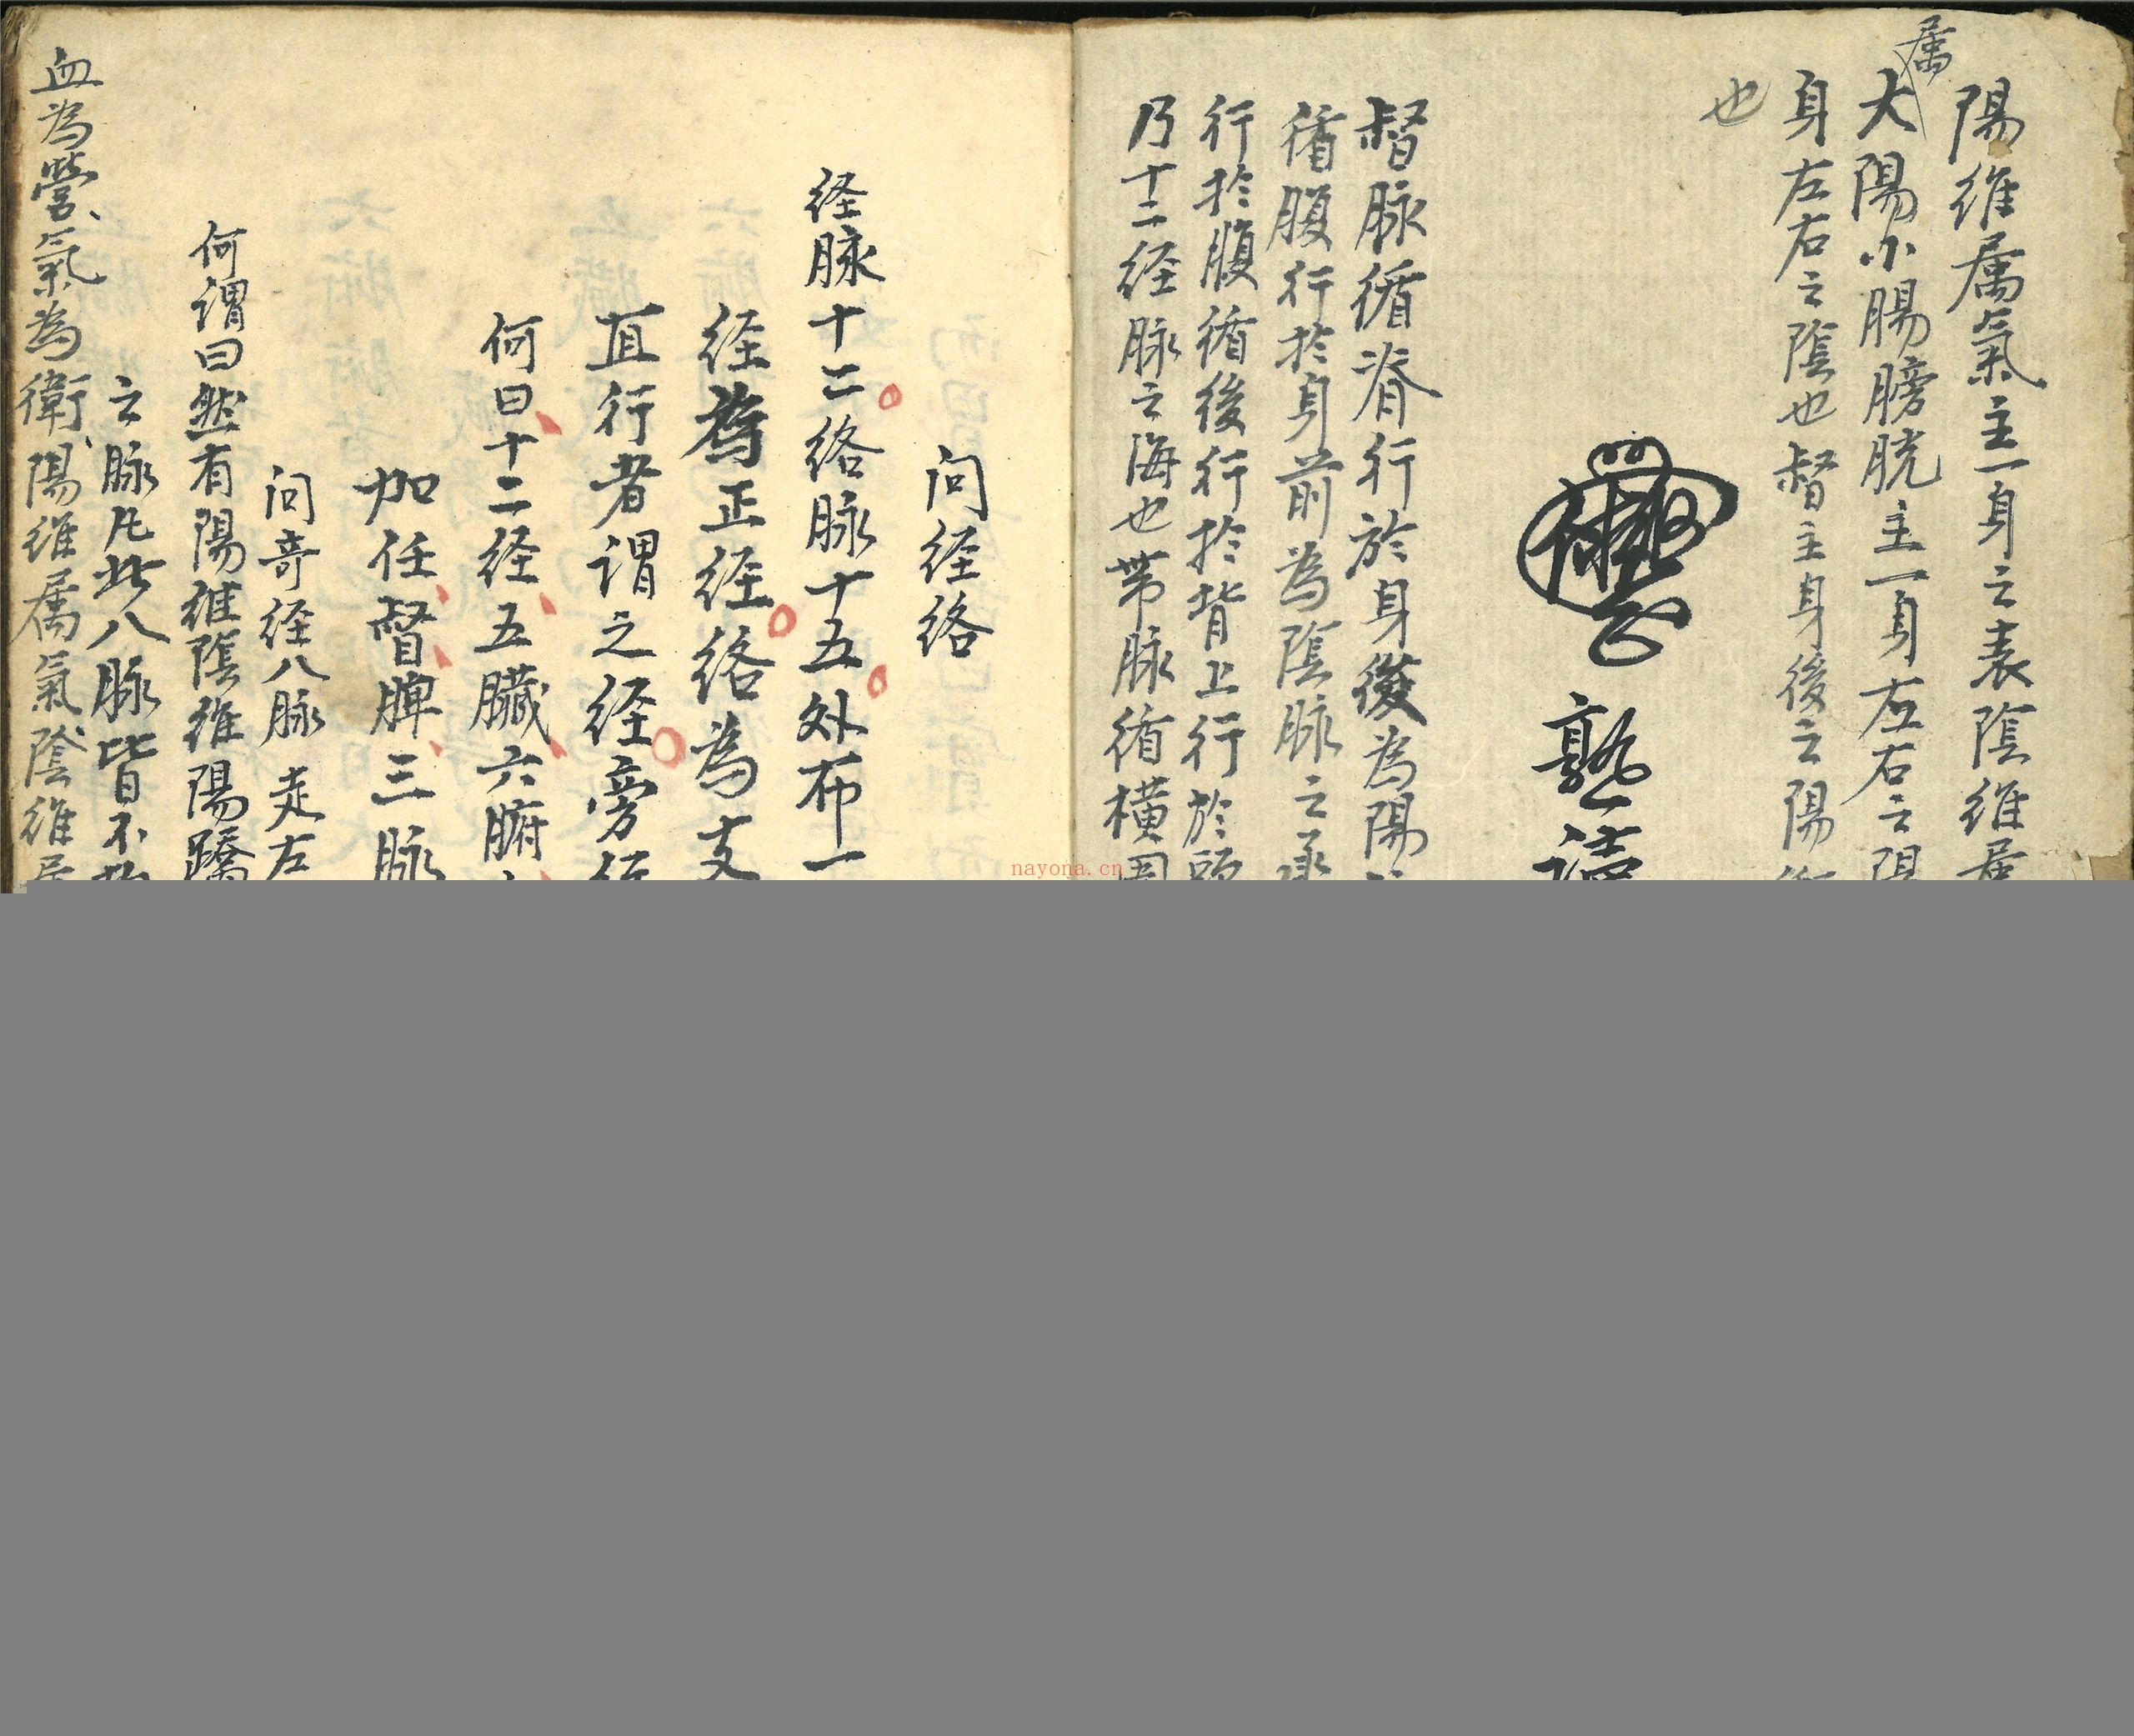 陽维属氣主一身之表陰维
属
大陽小腸膀胱主一身左右之陽
身左右之陰也督主身後之陽
也
熟讀
督脉循脊行於身後為陽
循腹行於身前為陰脉之承
行於腹循後行於背上行於頭
乃十二经脉之海也带脉循横围
问经络
经脉十二络脉十五外布一
经為正经络為支
直行者谓之经旁行
何曰十二经五臟六腑
加任督脾三脉
问奇经八脉 走左
何谓曰然有陽维陰维陽蹻
之脉凡此八脉皆不拘
血為營氣為衛陽维属氣陰维
nayona.cn